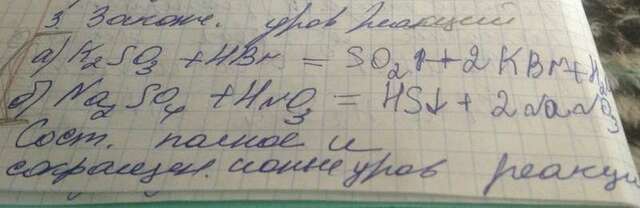 3 Законч. уров реакций
а) K₂SO₃ + HBr = SO₂↑ + 2KBr + H₂
б) Na₂SO₄ + HNO₃ = HS↓ + 2NaNO₃
Сост. полное и
сокращен. ионные уров реакци